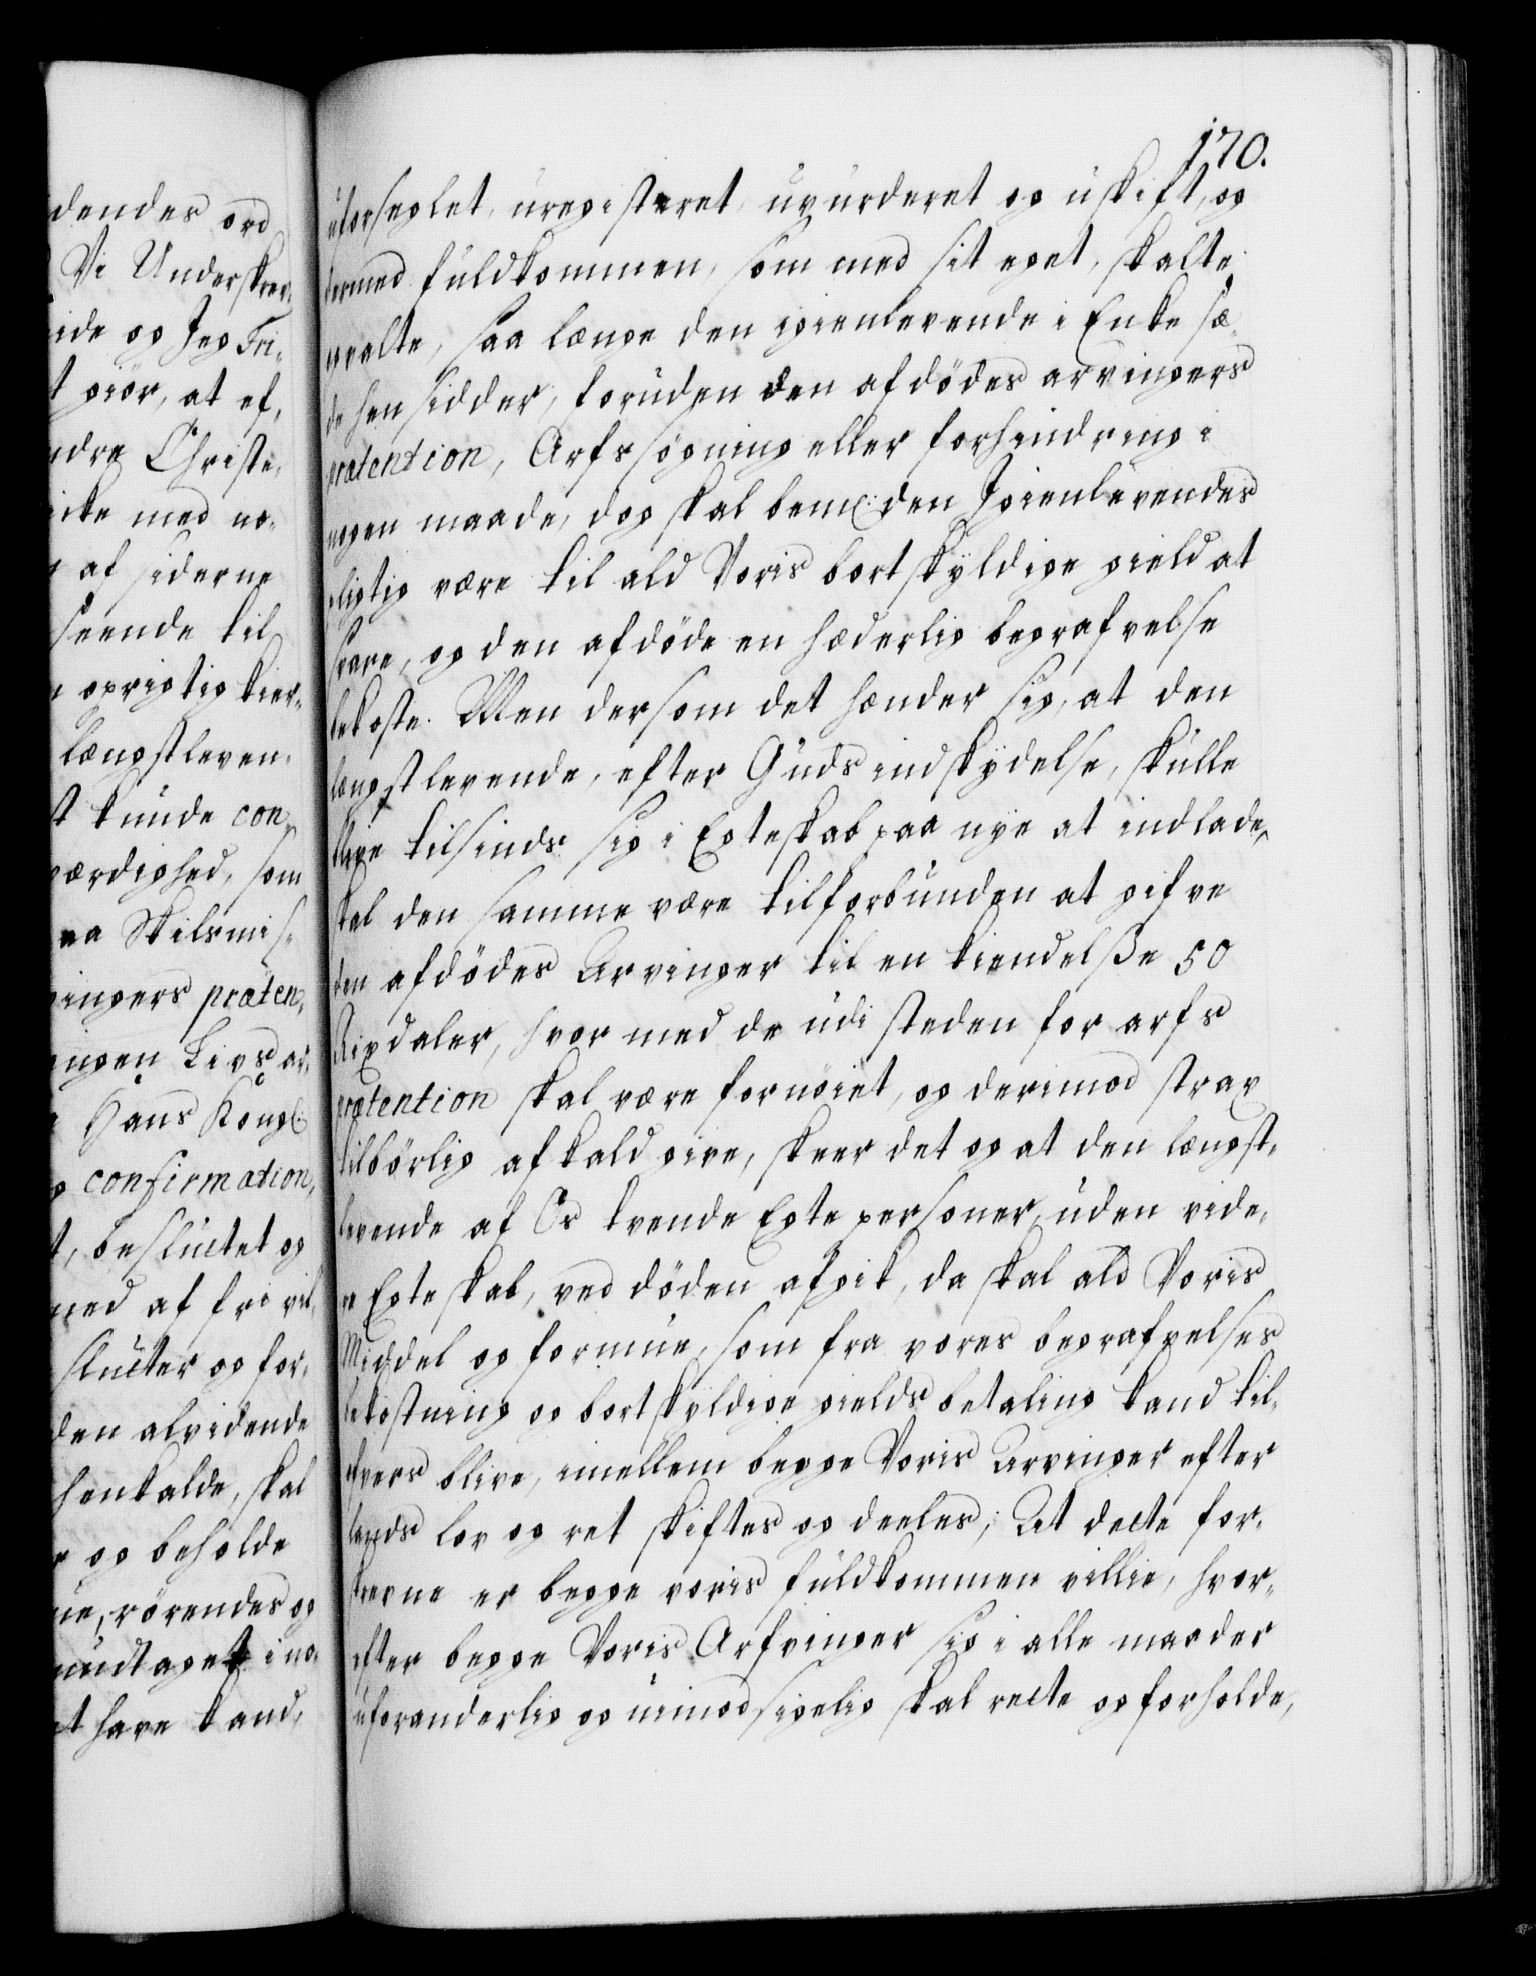 dendes ord
Vi Underskrev,,
ide og Jeg Fri,,
t giör, at ef,,
ndre Christe,,
icke med no,,
af siderne
seende til
oprigtig kier,,
længstleven,,
st kunde con,,
værdighed, som
aa Skilsmis,,
vingers præten,,
ingen Livs ar,,
Hans Kongl:
confirmation,
t, besluttet og
med af fri vil,,
slutter og for,,
den alvidende
henkalde, skal
og beholde
ue, rörendes og
undtaget i no,,
et have kand,
170.
uforseglet, uregisteret uvurderet og uskift, og
dermed fuldkommen, som med sit eget, skalte
og valte, saa længe den igienlevende i Enke sæ,,
de hen sidder, foruden den afdödes arvingers
prætention, Arfs sögning eller forhindring i
nogen maade, dog skal bem:te den Igienlevendes
pligtig være til ald Voris bortskyldige gield at
svare, og den afdöde en hæderlig begrafvelse
bekoste. Men dersom det hænder sig, at den
længstlevende, efter Guds indskydelse, skulle
blive tilsinds sig i Egteskab paa nye at indlade,
skal den samme være tilforbunden at gifve
den afdödes Arvinger til en kiendelsße 50
Rixdaler, hvor med de udi steden for arfs
prætention skal være fornöiet, og derimod strax
tilbörlig afkald give, skeer det og at den længst,,
levende af Os tvende Egte personer, uden vide,,
re Egteskab, ved döden afgik, da skal ald Voris
Middel og formue, som fra vores begrafvelses
bekostning og bortskyldige gields betaling kand til,,
afvers blive, imellem begge Voris Arvinger efter
lands lov og ret skiftes og deeles; At dette for,,
skrevne er begge voris fuldkommen villie, hvor,,
efter begge Voris Arfvinger sig i alle maader
uforanderlig og uimodsigelig skal rette og forholde,